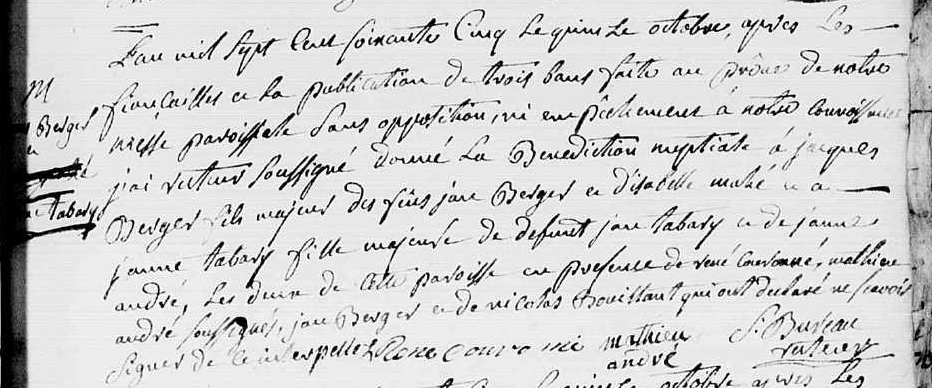 L'an mil sept cent soixante cinq le quinze octobre, après les
M
fiancailles et la publication de trois bans faite au prône de notre
Berger
messe paroissiale sans opposition, ni empêchement à notre connoissance
j'ai recteur soussigné donné la Benediction nuptiale à jacques
tabary
Berger fils majeur des feus jan Berger et d'isabelle mahé et a
janne tabary fille majeure de defunt jan tabary et de janne
andré, les deux de cette paroisse en presence de rené couronné, mathieu
andré soussignés, jan Berger et de nicolas Bouillant qui ont declaré ne scavoir
signer de ce interpellés Rene couronné mathieu andré
S. Bureau
recteur
octobre après les